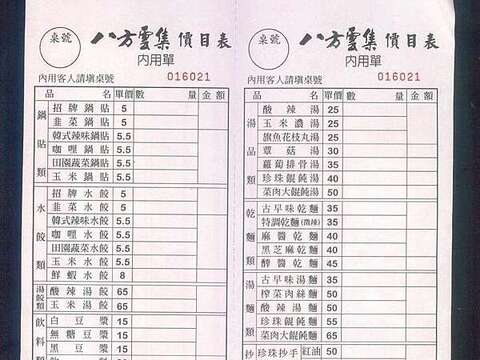 桌號
八方雲集 價目表
內用單
內用客人請填桌號 016021
品名 單價 數量 金額
鍋貼類
招牌鍋貼 5
韭菜鍋貼 5
韓式辣味鍋貼 5.5
咖哩鍋貼 5.5
田園蔬菜鍋貼 5.5
玉米鍋貼 5.5
水餃類
招牌水餃 5
韭菜水餃 5
韓式辣味水餃 5.5
咖哩水餃 5.5
田園蔬菜水餃 5.5
玉米水餃 5.5
鮮蝦水餃 8
湯餃類
酸辣湯餃 65
玉米湯餃 65
飲料類
白豆漿 15
無糖豆漿 15
黑豆漿 15
桌號
八方雲集 價目表
內用單
內用客人請填桌號 016021
品名 單價 數量 金額
湯品類
酸辣湯 25
玉米濃湯 25
旗魚花枝丸湯 25
蕈菇湯 30
蘿蔔排骨湯 35
珍珠餛飩湯 40
菜肉大餛飩湯 50
乾麵類
古早味乾麵 35
特調乾麵(微辣) 35
麻醬乾麵 40
黑芝麻乾麵 40
酢醬乾麵 45
湯麵類
古早味湯麵 35
榨菜肉絲麵 50
酸辣湯麵 50
珍珠餛飩麵 55
菜肉大餛飩麵 65
抄
珍珠抄手 紅油 50